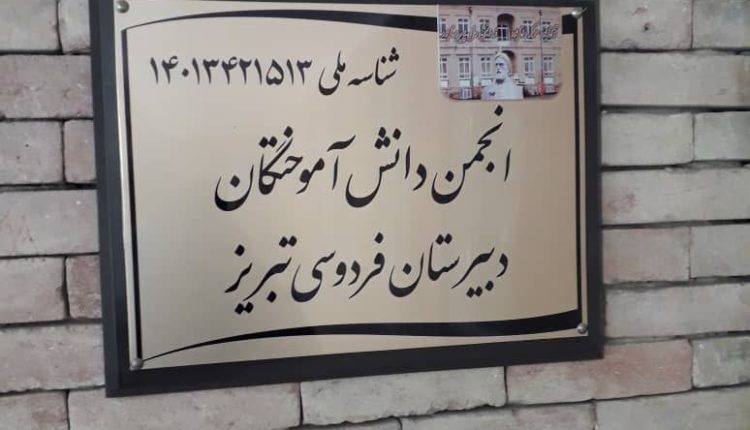 شناسه ملی ۱۴۰۱۳۴۲۱۵۱۳
انجمن دانش آموختگان
دبیرستان فردوسی تبریز